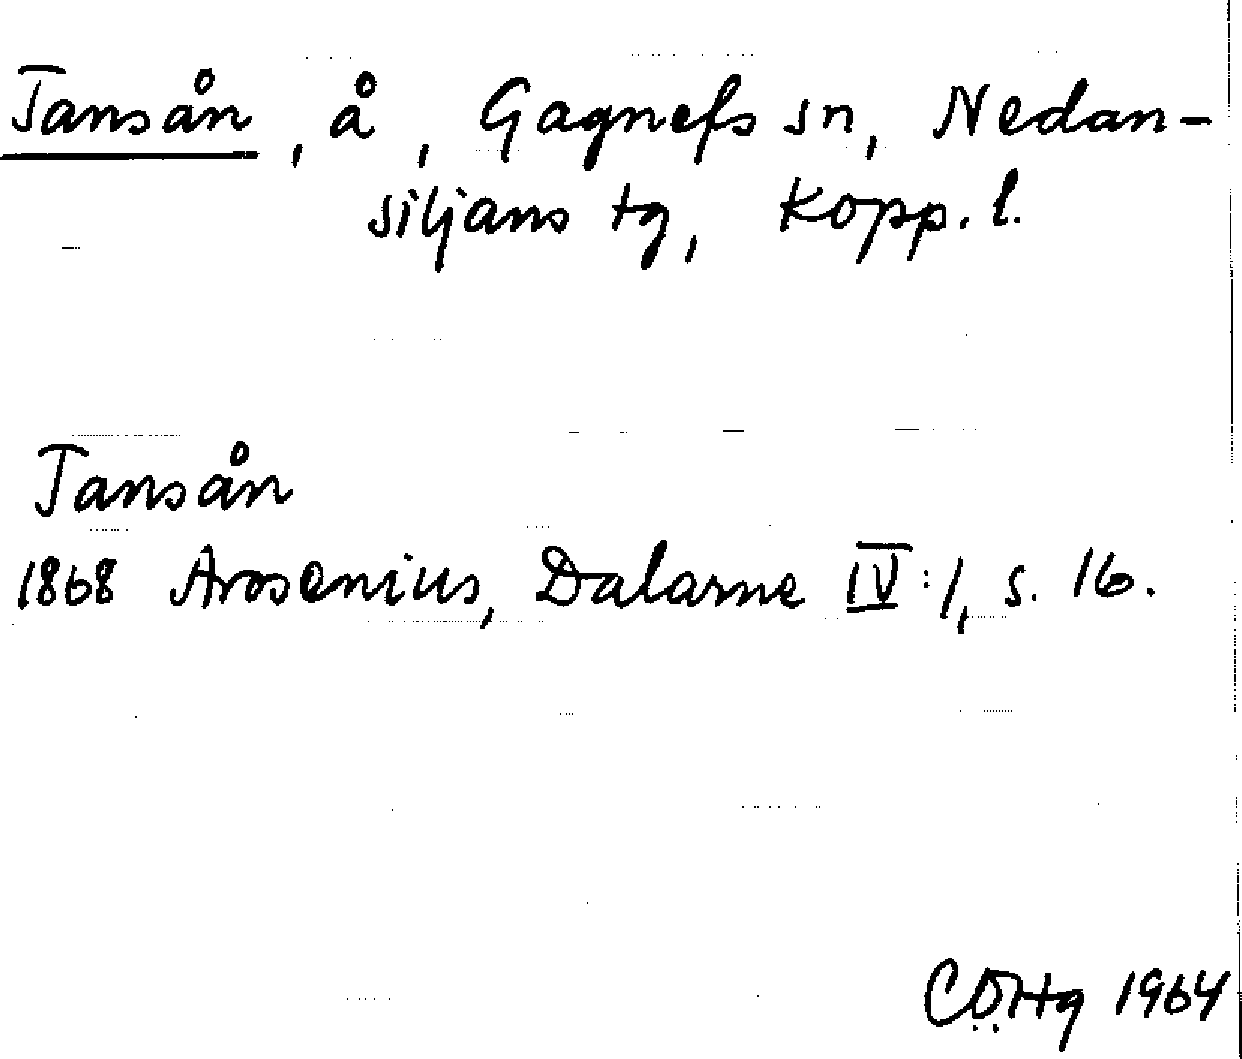 Tansån, å, Gagnefs sn, Nedan-
siljans tg, Kopp. l.
Tansån
1868 Arosenius, Dalarne IV:1, s. 16.
CÖHg 1964